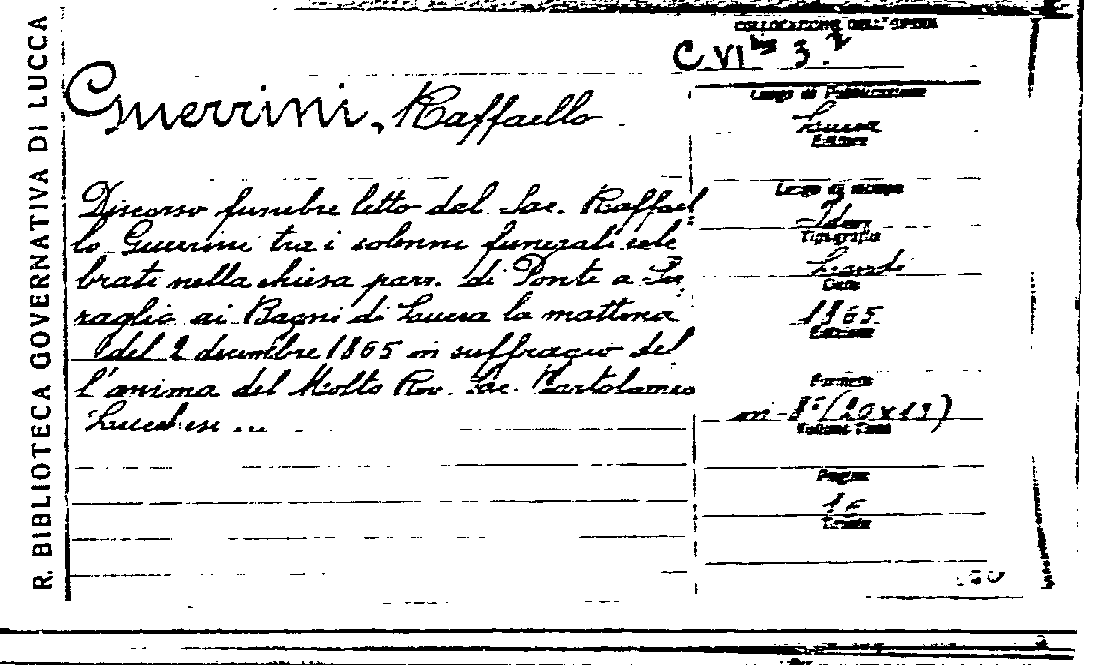 R. BIBLIOTECA GOVERNATIVA DI LUCCA
COLLOCAZIONE DELL'OPERA
C. VI bis 3.2
Guerrini, Raffaello
Discorso funebre letto dal Sac. Raffael
lo Guerrini tra i solenni funerali cele
brati nella chiesa parr. di Ponte a Se
raglio ai Bagni di Lucca la mattina
del 2 decembre 1865 in suffragio del
l'anima del Molto Rev. Sac. Bartolameo
Lucchesi ...
Luogo di Pubblicazione
Lucca
Editore
Luogo di stampa
Idem
Tipografia
Landi
Data
1865
Edizione
Formato
in-8° (20x13)
Pagine
16